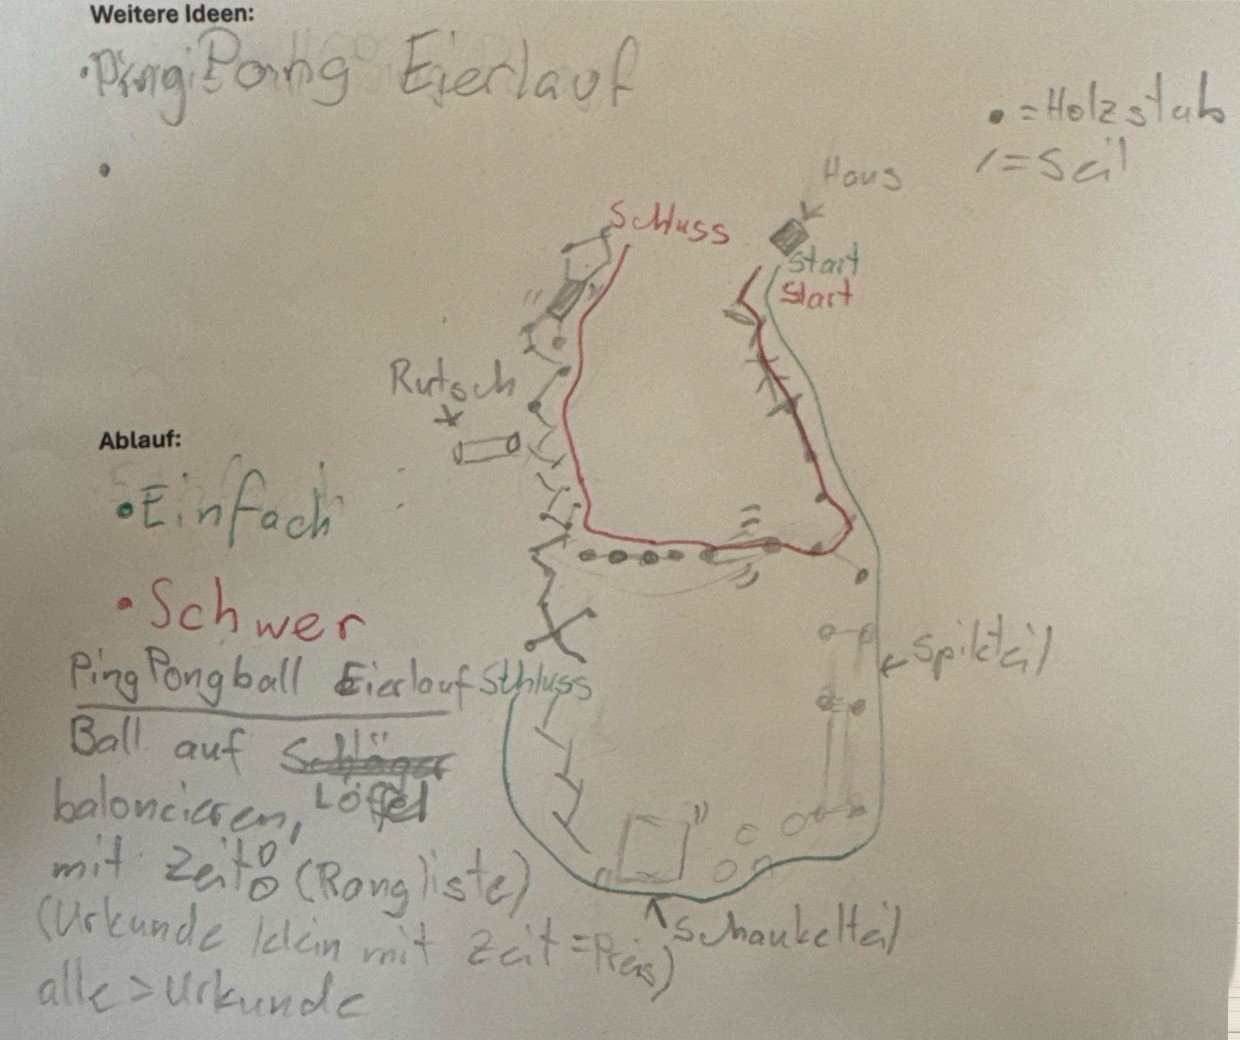 Weitere Ideen:
• PingPong Eierlauf
•
• = Holzstab
/ = Seil
Haus
Schluss
Start
Start
Rutsch
Ablauf:
• Einfach
• Schwer
Spikteil
PingPongball Eierlauf
Schluss
Ball auf Schläger
Löffel
baloncieren,
mit Zeit (Rangliste)
(Urkunde klein mit Zeit = Preis)
Schaukelteil
alle > Urkunde